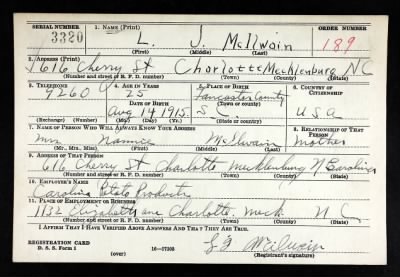 SERIAL NUMBER 1. NAME (Print) ORDER NUMBER
3320 L. J. McIlwain 189
2. ADDRESS (Print)
1616 Cherry St Charlotte Mecklenburg NC
(Number and street or R. F. D. number) (Town) (County) (State)
3. TELEPHONE 4. AGE IN YEARS 5. PLACE OF BIRTH 6. COUNTRY OF CITIZENSHIP
9260 25 Lancaster County
DATE OF BIRTH (Town or county)
Aug 14 1915. S. C. USA
(Exchange) (Number) (Mo.) (Day) (Yr.) (State or country)
7. NAME OF PERSON WHO WILL ALWAYS KNOW YOUR ADDRESS 8. RELATIONSHIP OF THAT PERSON
Mrs McIlwain mother
(Mr., Mrs., Miss) (First) (Middle) (Last)
9. ADDRESS OF THAT PERSON
616 Cherry St Charlotte Mecklenburg N Carolina
(Number and street or R. F. D. number) (Town) (County) (State)
10. EMPLOYER'S NAME
Carolina Potato Products
11. PLACE OF EMPLOYMENT OR BUSINESS
1132 Elizabeth ave Charlotte. Meck. N C
(Number and street or R. F. D. number) (Town) (County) (State)
I AFFIRM THAT I HAVE VERIFIED ABOVE ANSWERS AND THAT THEY ARE TRUE.
REGISTRATION CARD
D. S. S. Form 1 (over) 16—17105 (Registrant's signature)